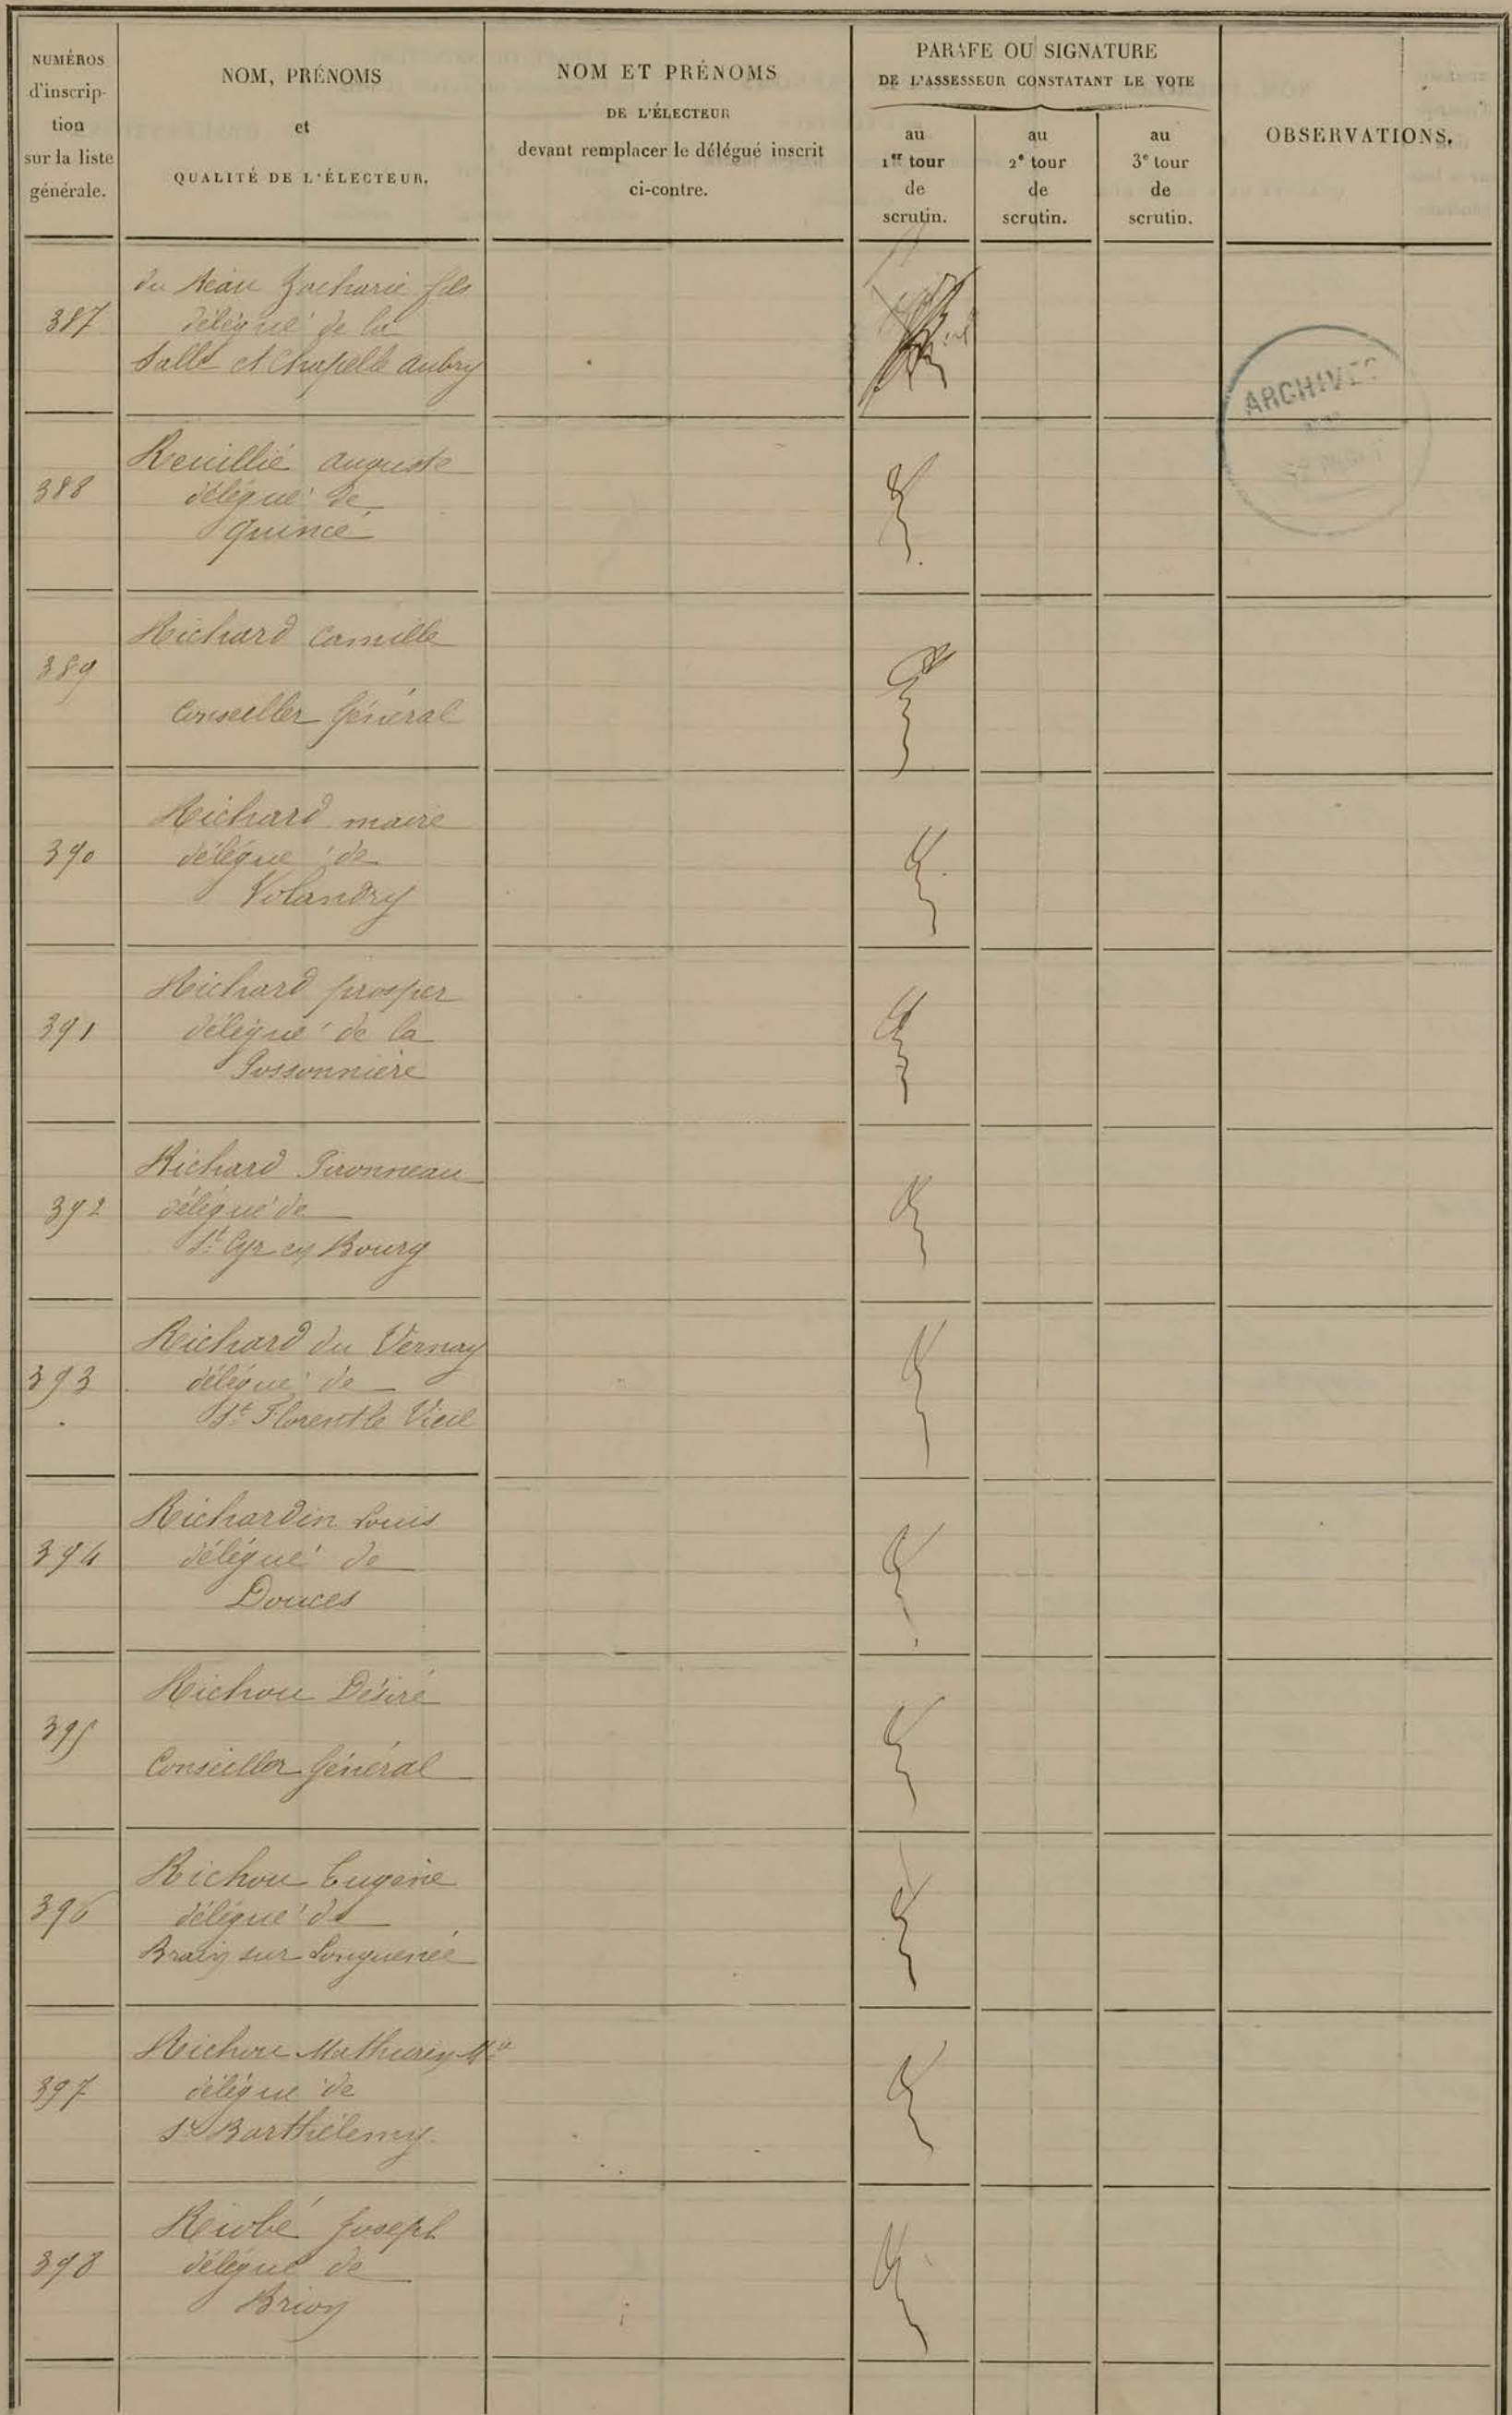 NUMÉROS
d'inscrip-
tion
sur la liste
générale.
NOM, PRÉNOMS
et
QUALITÉ DE L'ÉLECTEUR.
NOM ET PRÉNOMS
DE L'ÉLECTEUR
devant remplacer le délégué inscrit
ci-contre.
PARAFE OU SIGNATURE
DE L'ASSESSEUR CONSTATANT LE VOTE
au
1er tour
de
scrutin.
au
2e tour
de
scrutin.
au
3e tour
de
scrutin.
OBSERVATIONS.
ARCHIVES
387
du Réau Zacharie fils
délégué de la
Salle et Chapelle aubry
388
Reuillié auguste
délégué de
Quincé
389
Richard Camille
Conseiller Général
390
Richard maire
délégué de
Volandry
391
Richard prosper
délégué de la
Possonnière
392
Richard Pironneau
délégué de
St Cyr en Bourg
393
Richard du Vernay
délégué de
St Florent le Vieil
394
Richardin Louis
délégué de
Douces
395
Richou Désiré
Conseiller Général
396
Richou Eugène
délégué de
Brain sur Longuenée
397
Richou Mathurin
délégué de
St Barthélemy
398
Riobé Joseph
délégué de
Brion